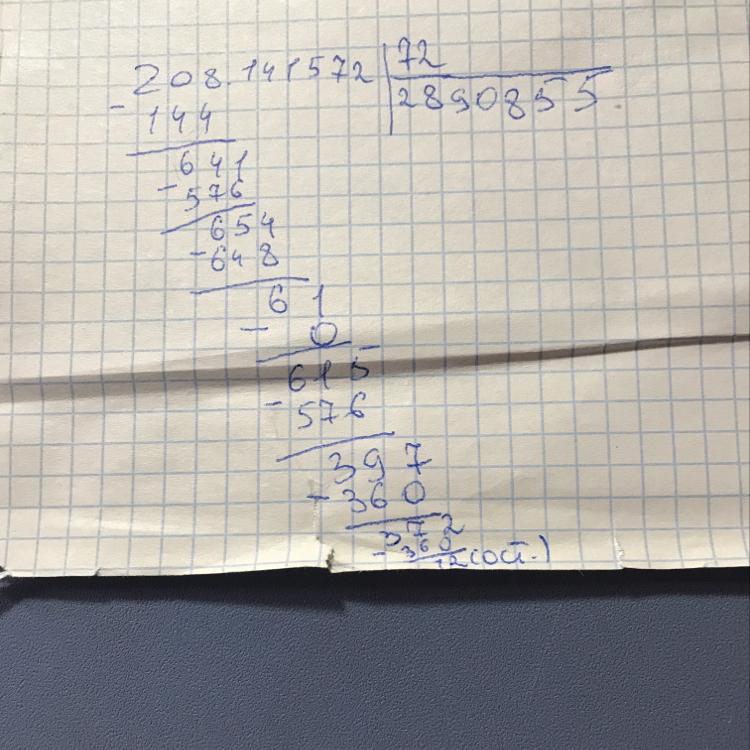 208.141572 72
- 144 2890855
641
- 576
654
- 648
61
- 0
615
- 576
397
- 360
372
- 360
12 (ост.)